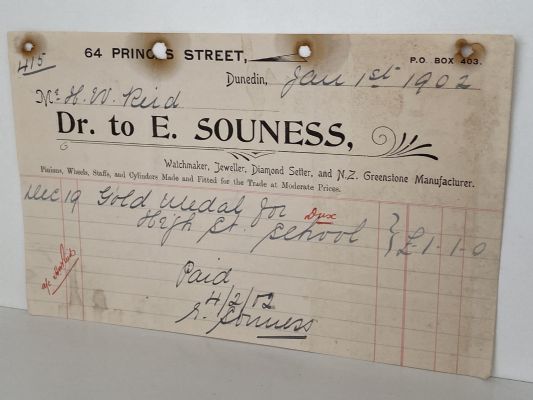 64 PRINCES STREET,
P.O. BOX 403.
415
Dunedin, Jan 1st 1902
Mr. H. W. Reid
Dr. to E. SOUNESS,
Watchmaker, Jeweller, Diamond Setter, and N.Z. Greenstone Manufacturer.
Pinions, Wheels, Staffs, and Cylinders Made and Fitted for the Trade at Moderate Prices.
Dec 19 Gold medal for Dux
High St. School £1-1-0
a/c
Paid
4/2/02
E. Souness